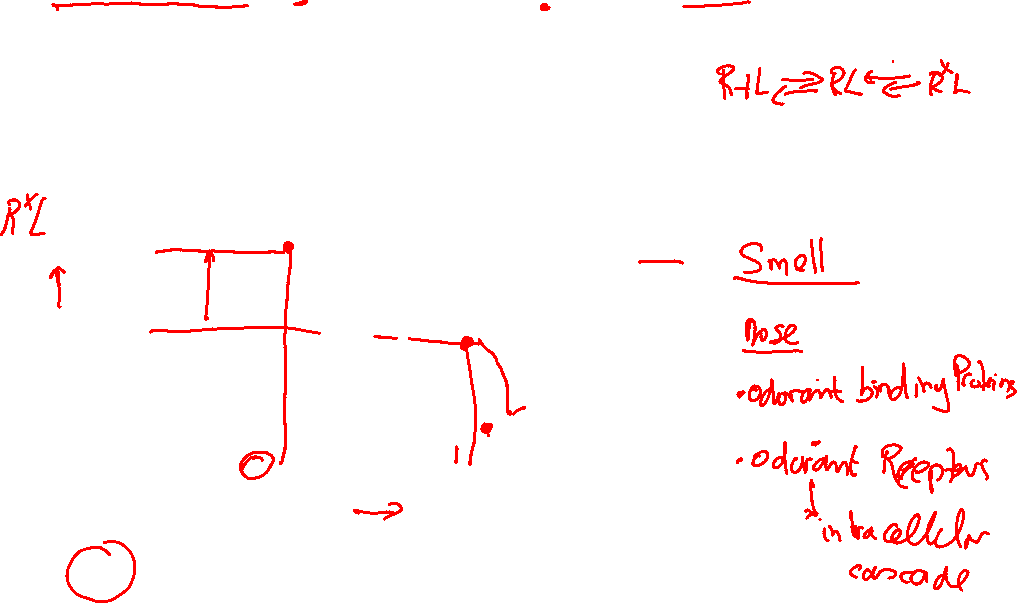 R+L ⇌ RL ⇌ R*L
R*L
Smell
nose
• odorant binding Proteins
• odorant Receptors
intracellular
cascade